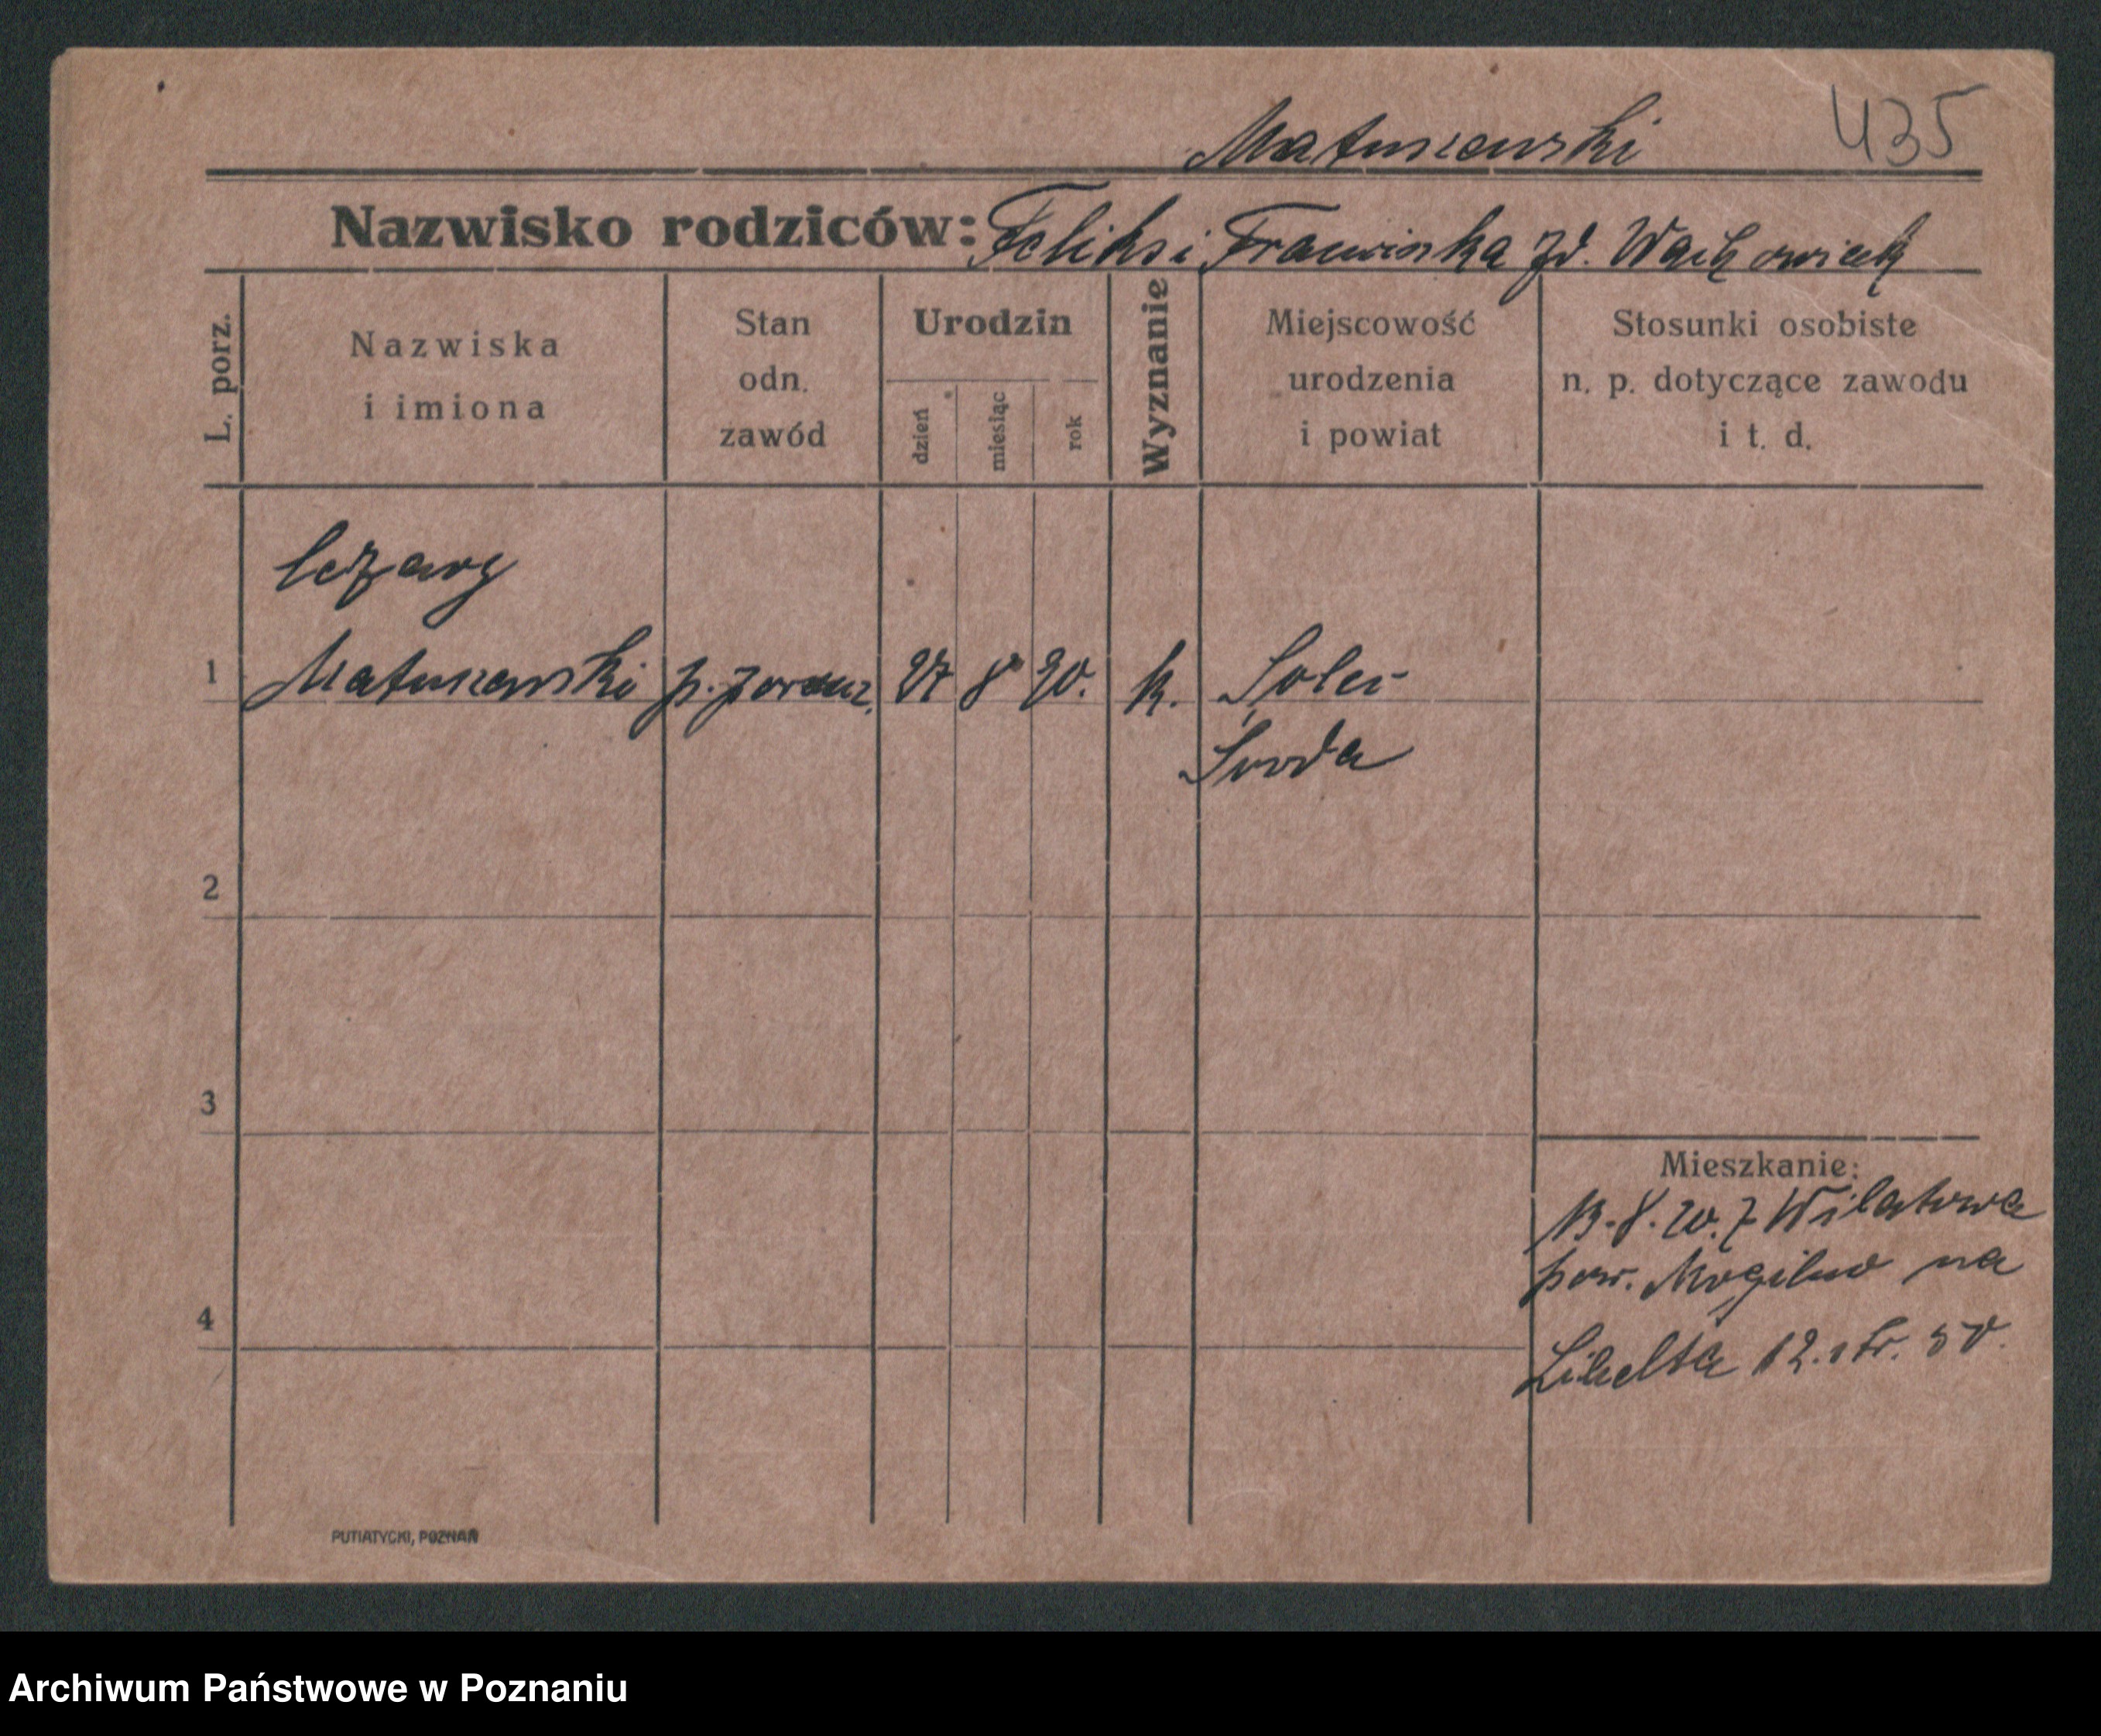 Matuszewski 435
Nazwisko rodziców: Feliks i Franciszka zd. Wachowiak
L. porz.
Nazwiska
i imiona
Stan
odn.
zawód
Urodzin
dzień
miesiąc
rok
Wyznanie
Miejscowość
urodzenia
i powiat
Stosunki osobiste
n. p. dotyczące zawodu
i t. d.
Cezary
1 Matuszewski 27 8 90. k. Solec
Środa
2
3
Mieszkanie:
13.8.20. z Wilatowa
pow. Mogilno na
4
Libelta 12. str.
PUTIATYCKI, POZNAŃ
Archiwum Państwowe w Poznaniu